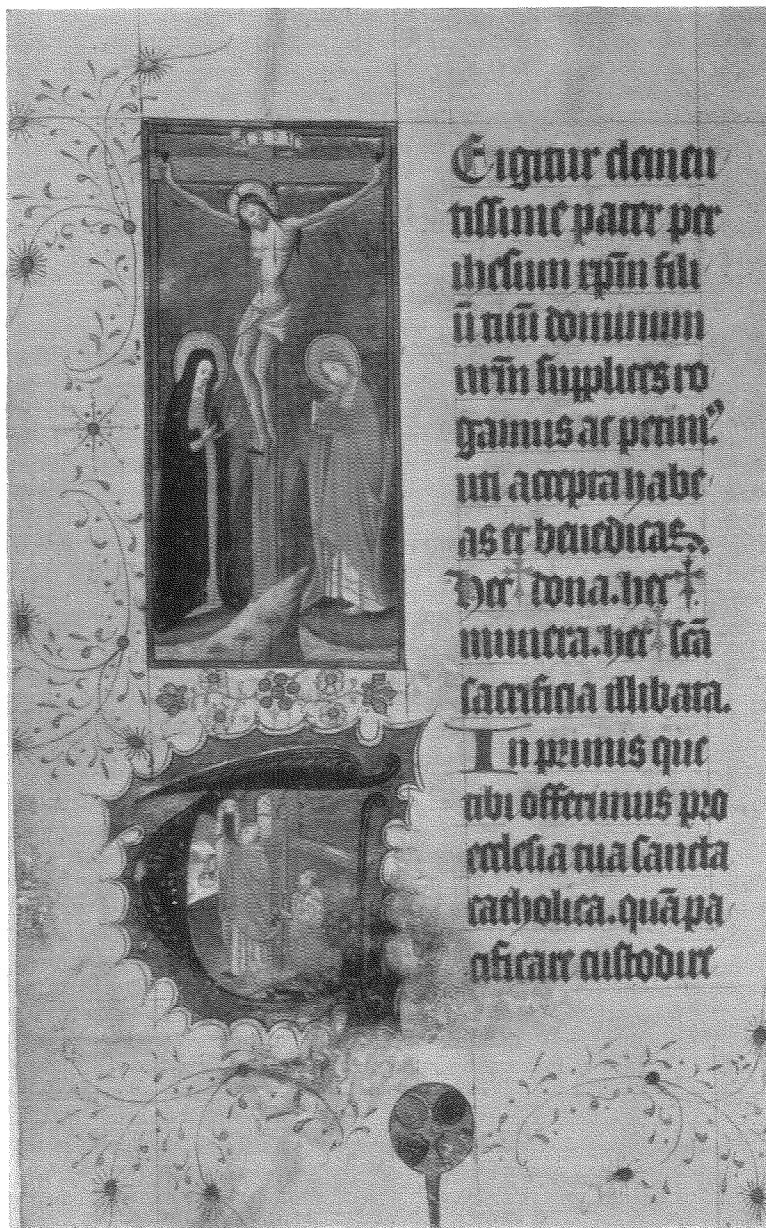 E igitur clemen
tissime pater per
ihesum xp̄m fili
ū tuū dominum
nr̄m supplices ro
gamus ac petim⁹
uti accepta habe
as et benedicas.
Hec ✝ dona. hec ✝
munera. hec ✝ sc̄a
sacrificia illibata.
In primis que
tibi offerimus pro
ecclesia tua sancta
catholica. quā pa
cificare custodire